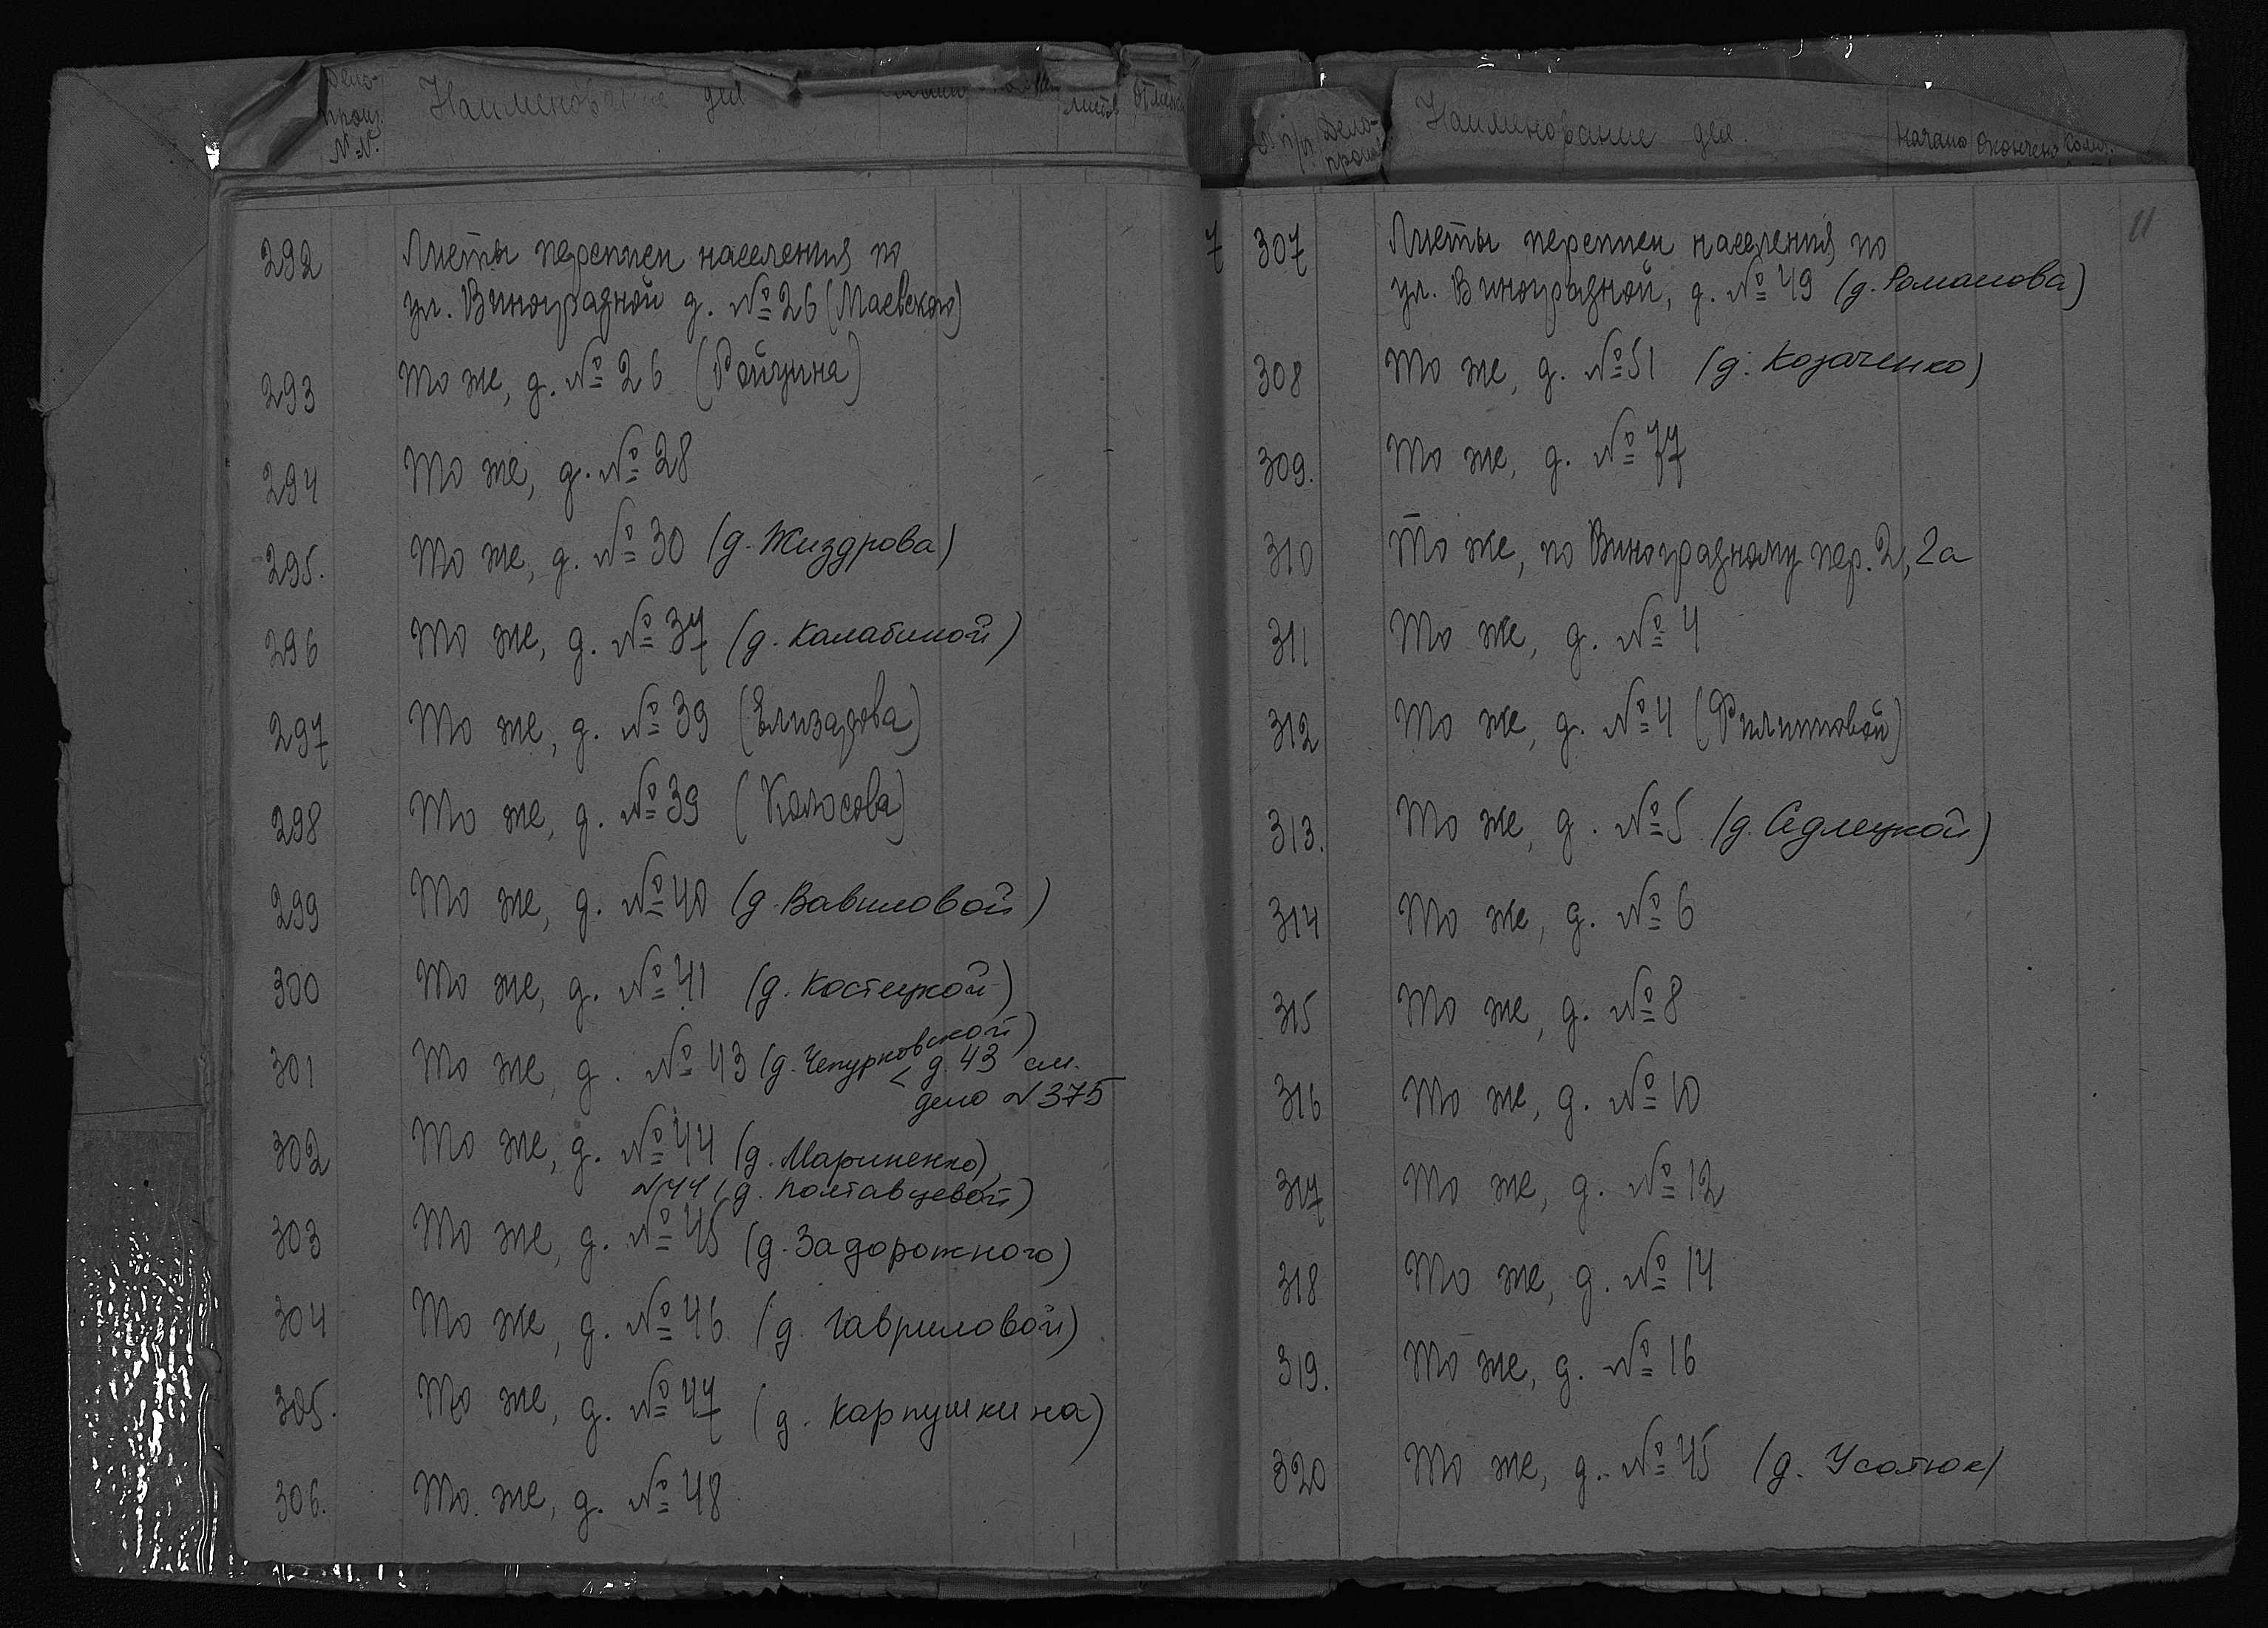 Дело-
произ.
№№
Наименование дел
листов
292 Листы переписи населения по
ул. Виноградной д. № 26 (Маевского)
293 То же, д. № 26 (Ройзина)
294 То же, д. № 28
295. То же, д. № 30 (д. Жиздрова)
296 То же, д. № 37 (д. Калабиной)
297 То же, д. № 39 (Елизарова)
298 То же, д. № 39 (Колосова)
299 То же, д. № 40 (д. Вавиловой)
300 То же, д. № 41 (д. Костецкой)
301 То же, д. № 43 (д. Чепурковской)
< д. 43 см.
дело № 375
302 То же, д. № 44 (д. Мариненко),
№ 44 (д. Полтавцевой)
303 То же, д. № 45 (д. Задорожного)
304 То же, д. № 46 (д. Гавриловой)
305. То же, д. № 47 (д. Карпушкина)
306. То же, д. № 48
п/п Дело-
произ
Наименование дел.
Начало Окончено Колич.
11
7 307 Листы переписи населения по
ул. Виноградной, д. № 49 (д. Романова)
308 То же, д. № 51 (д. Козаченко)
309. То же, д. № 77
310 То же, по Виноградному пер. 2, 2а
311 То же, д. № 4
312 То же, д. № 4 (Филипповой)
313. То же, д. № 5 (д. Седлецкой)
314 То же, д. № 6
315 То же, д. № 8
316 То же, д. № 10
317 То же, д. № 12
318 То же, д. № 14
319. То же, д. № 16
320 То же, д. № 45 (д. Усатюк)